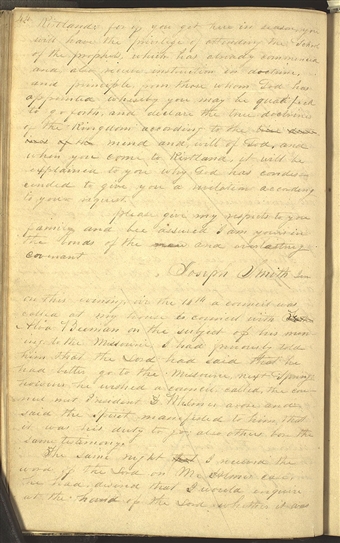 Kirtland for if you get here in season you
will have the privilege of attending the School
of the prophets, which has already commenced
and also receive instruction in doctrine,
and principle from those whom God has
appointed whereby you may be qualified
to go forth, and declare the true doctrines
of the Kingdom according to the
mind and will of God, and
when you come to Kirtland, it will be
explained to you why God has condes
cended to give you a revelation according
to your request.
please give my respects to your
family, and bee assured I am yours in
the bonds of the new and everlasting
covenant
Joseph Smith Jun
on this evening, on the 11th a council was
called at my house to council with
Alva Beeman on the subject of his mov
ing to the Missourie I had previously told
him that the Lord had said that he
had better go to the Missourie, next Spring
however he wished a council, called, the coun
cil met President D. Whitmer arose and
said the Spirit manifested to him that
it was his duty to go also others bore the
same testimony
The same night that I received the
word of the Lord on Mr. case
he had desired that I would enquire
at the hand of the Lord whether it was